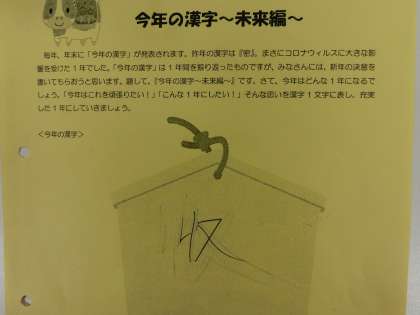 今年の漢字～未来編～
毎年、年末に「今年の漢字」が発表されます。昨年の漢字は『密』。まさにコロナウィルスに大きな影
響を受けた1年でした。「今年の漢字」は1年間を振り返ったものですが、みなさんには、新年の決意を
書いてもらおうと思います。題して、『今年の漢字～未来編～』です。さて、今年はどんな1年になるで
しょう。「今年はこれを頑張りたい！」「こんな1年にしたい！」そんな思いを漢字1文字に表し、充実
した1年にしていきましょう。
＜今年の漢字＞
収